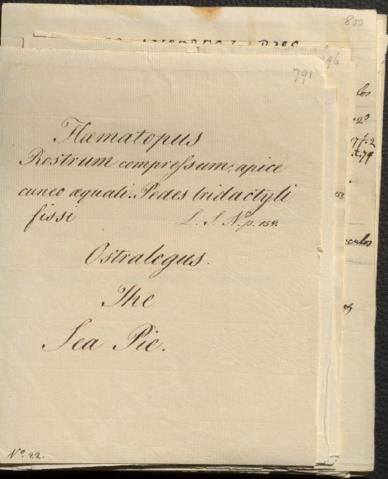 800
796
791
Hæmatopus
Rostrum compressum, apice
cuneo æquali. Pedes tridactyli
fissi L. S. No p. 152.
Ostralegus.
The
Sea Pie.
No. 22.